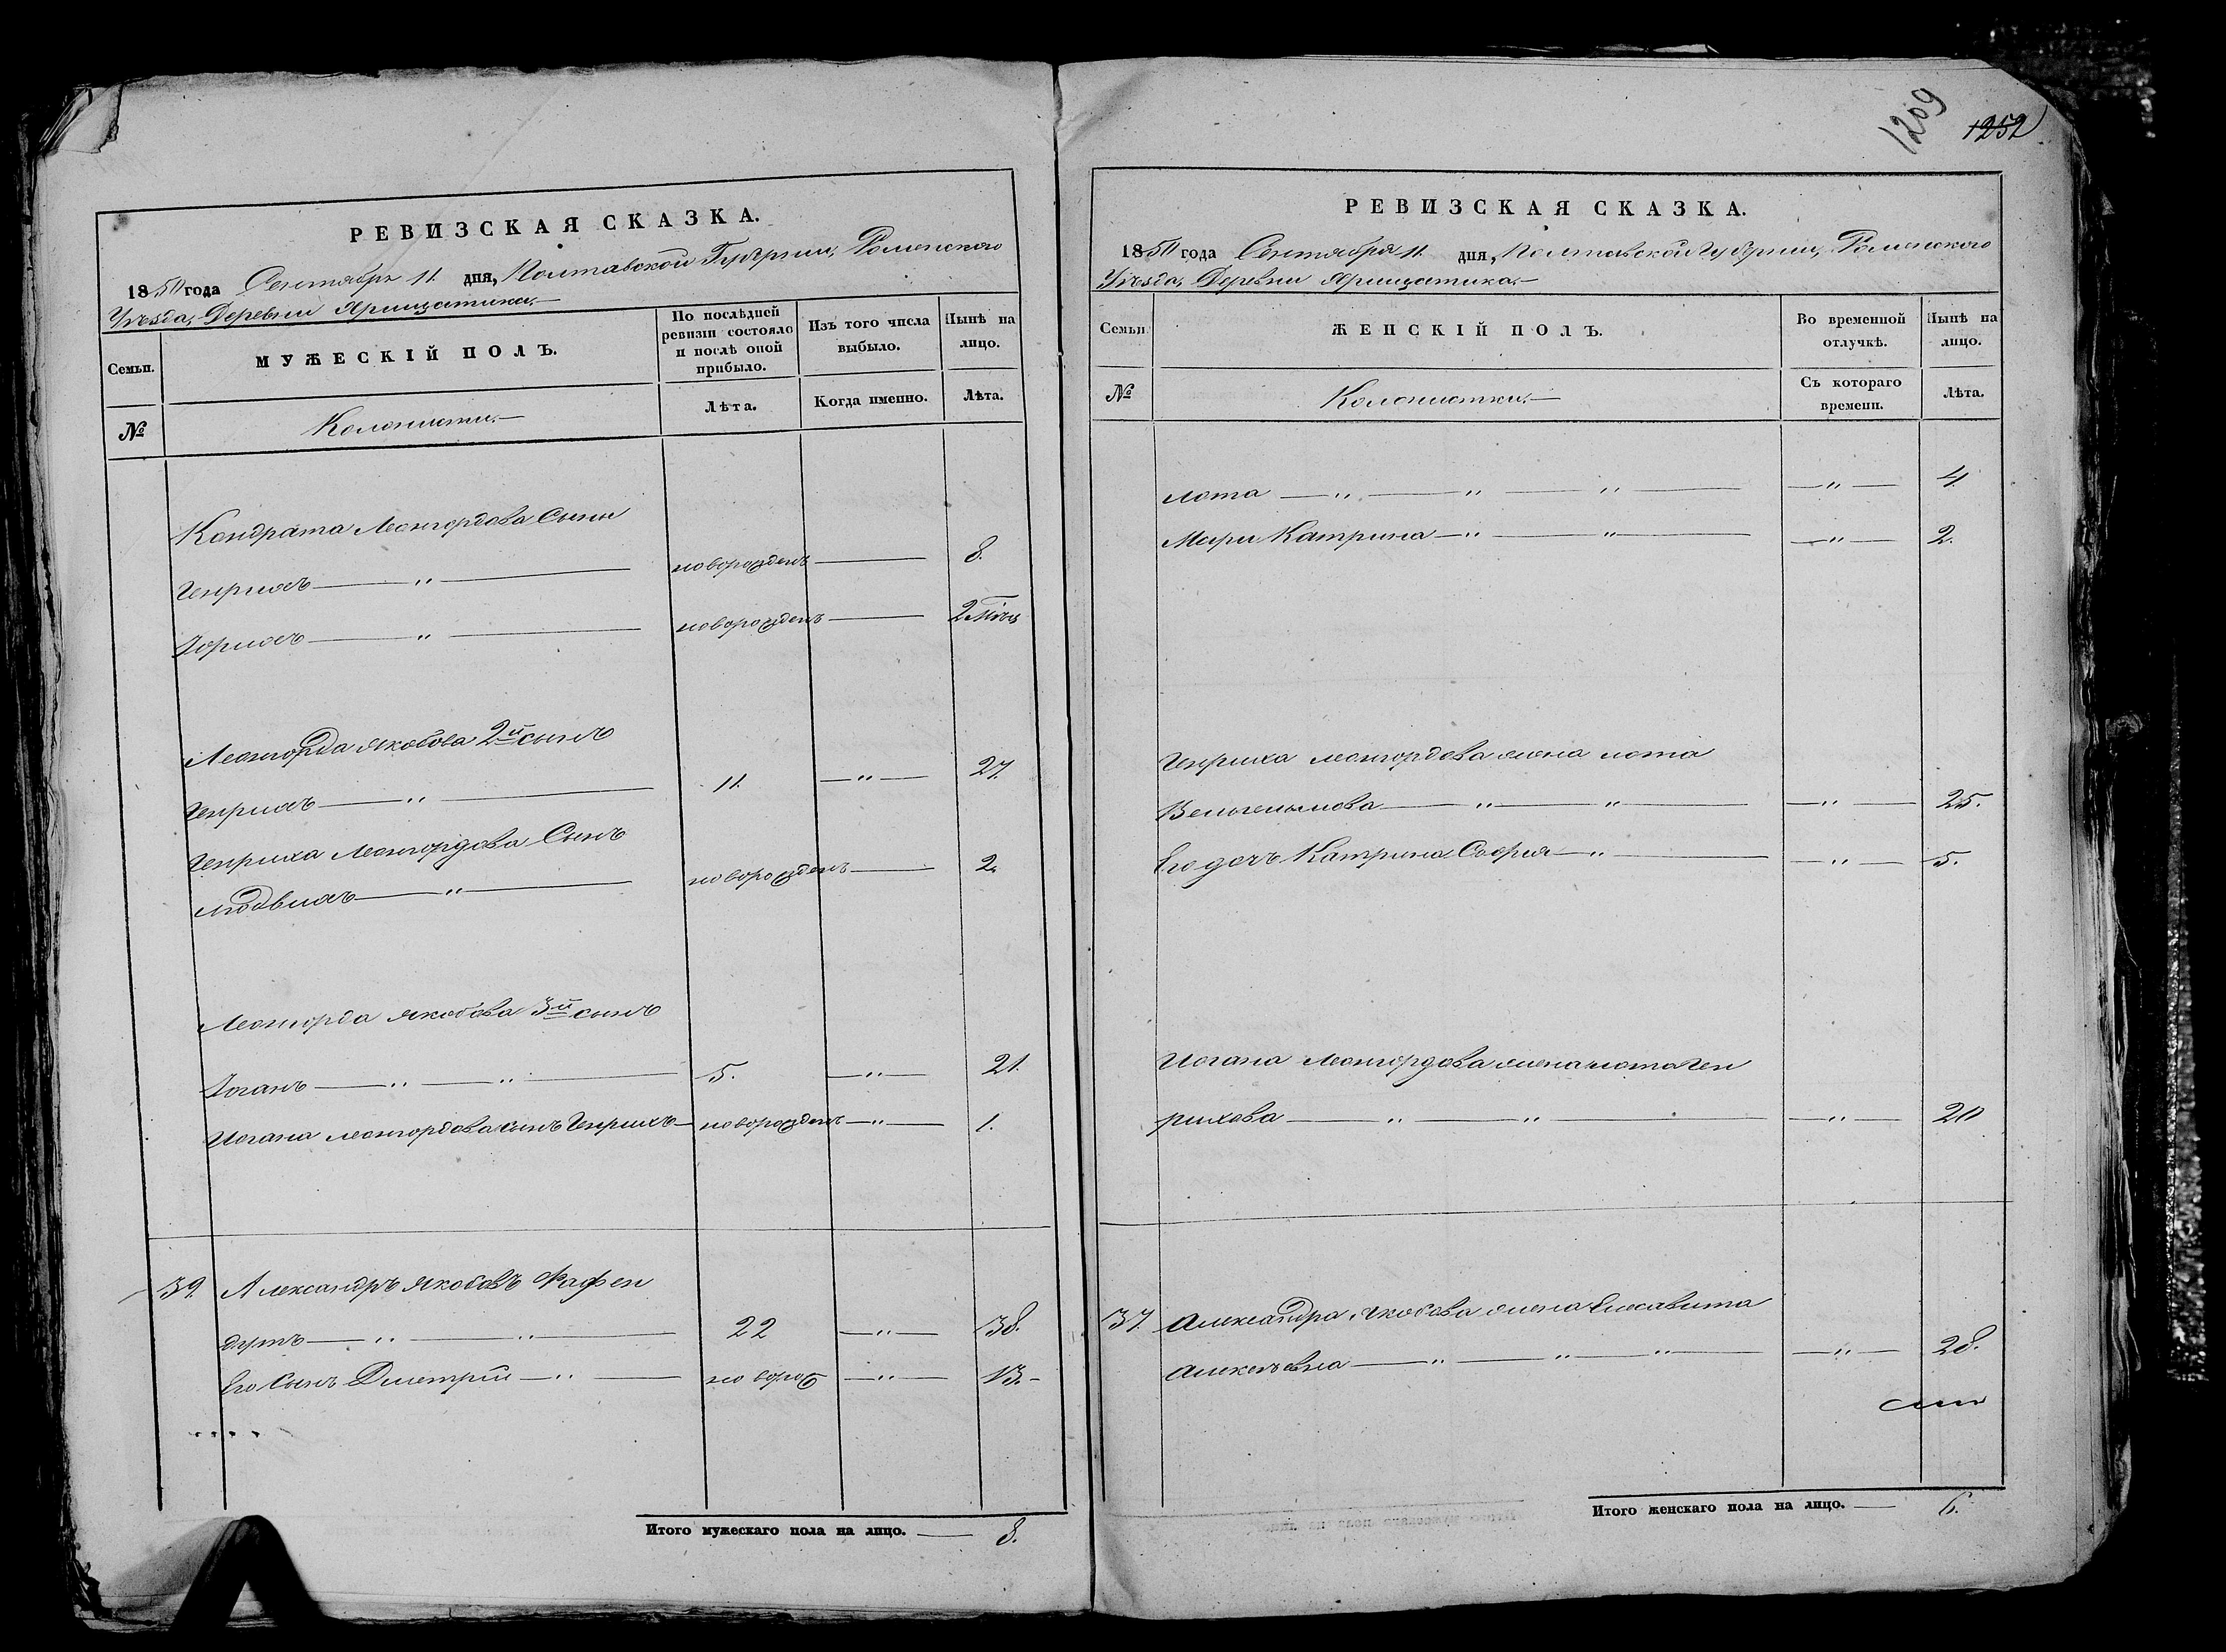 1209
1252
РЕВИЗСКАЯ СКАЗКА.
1850 года Сентября 11. дня, Полтавской Губерніи, Роменского
Уѣзда, Деревни
Семьи.
МУЖЕСКІЙ ПОЛЪ.
По послѣдней ревизіи состояло и послѣ оной прибыло.
Изъ того числа выбыло.
Нынѣ на лицо.
№
Колонисты.
Лѣта.
Когда именно.
Лѣта.
Кондрата Леонгардова Сыны
Генрихъ — " — новорожденъ — 8.
— " — новорожденъ — 2
Леонгарда Якобова 2й сынъ
Генрихъ — " — 11. — " — 27.
Генриха Леонгардова Сынъ
Людвихъ — " — новорожденъ — 2.
Леонгарда Якобова 3й сынъ
Іоганъ — " — " — 5. — " — 21.
Иогана Леонгардова сынъ Генрихъ — новорожденъ — " — 1.
39. Александръ Якобовъ
— " — " — 22 — " — 38.
Его Сынъ Дмитрій — " — новорож — " — 13. -
Итого мужескаго пола на лицо. — 8.
РЕВИЗСКАЯ СКАЗКА.
1850 года Сентября 11. дня, Полтавской Губерніи, Роменского
Уѣзда, Деревни
Семьи.
ЖЕНСКІЙ ПОЛЪ.
Во временной отлучкѣ.
Нынѣ на лицо.
№
Колонистки.
Съ котораго времени.
Лѣта.
Лота — " — " — " — " — 4
Мари Катрина — " — " — " — 2.
Генриха Леонгардова жена Лота
Вельгельмова — " — " — " — 25.
Его дочь Катрина София — " — " — 5.
Иогана Леонгардова жена Лота Ген
рихова — " — " — " — 20
37. Александра Якобова жена Елисавита
Алексѣевна — " — " — " — " — 28.
Итого женскаго пола на лицо. — 6.